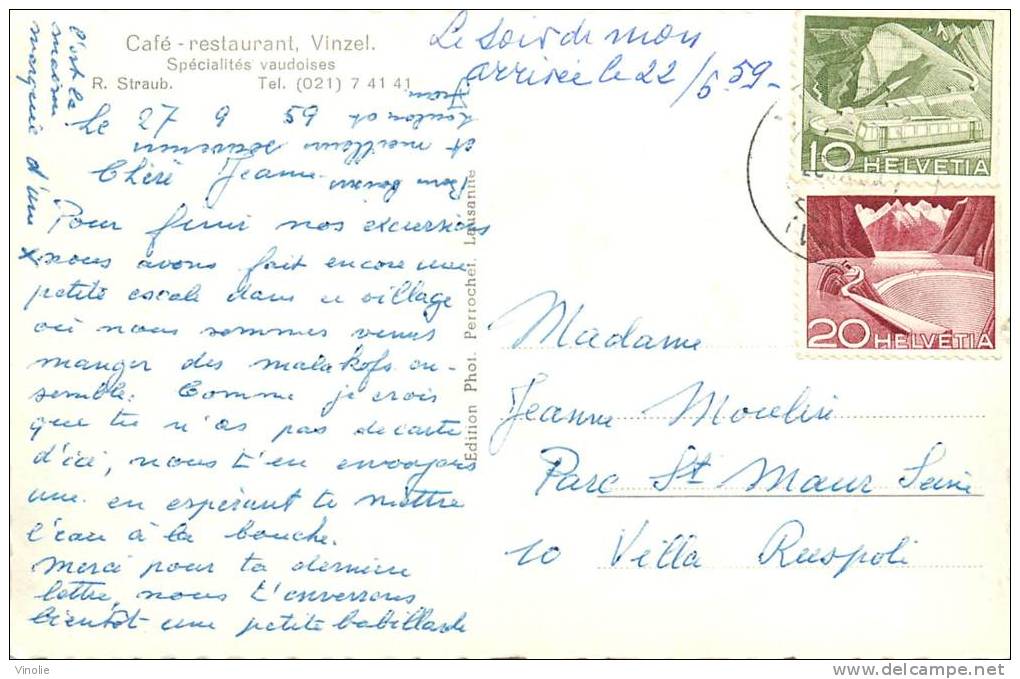 Café - restaurant, Vinzel.
Spécialités vaudoises
R. Straub. Tel. (021) 7 41 41
Le 27 9 59
Chère Jeanne
Pour finir nos excursions
nous avons fait encore une
petite escale dans ce village
où nous sommes venus
manger des malakofs en-
semble. Comme je crois
que tu n'as pas de carte
d'ici, nous t'en envoyons
une en espérant te mettre
l'eau à la bouche.
Merci pour ta dernière
lettre, nous t'enverrons
bientôt une petite babillarde
Bons baisers
et meilleurs souvenirs
c'est la
maison
marquée d'une x
Edition Phot. Perrochet, Lausanne
Le soir de mon
arrivée le 22/6 59-
10 HELVETIA
20 HELVETIA
Madame
Jeanne Moulin
Parc St Maur Seine
10 Villa Ruspoli
Vinolie
delcampe.net